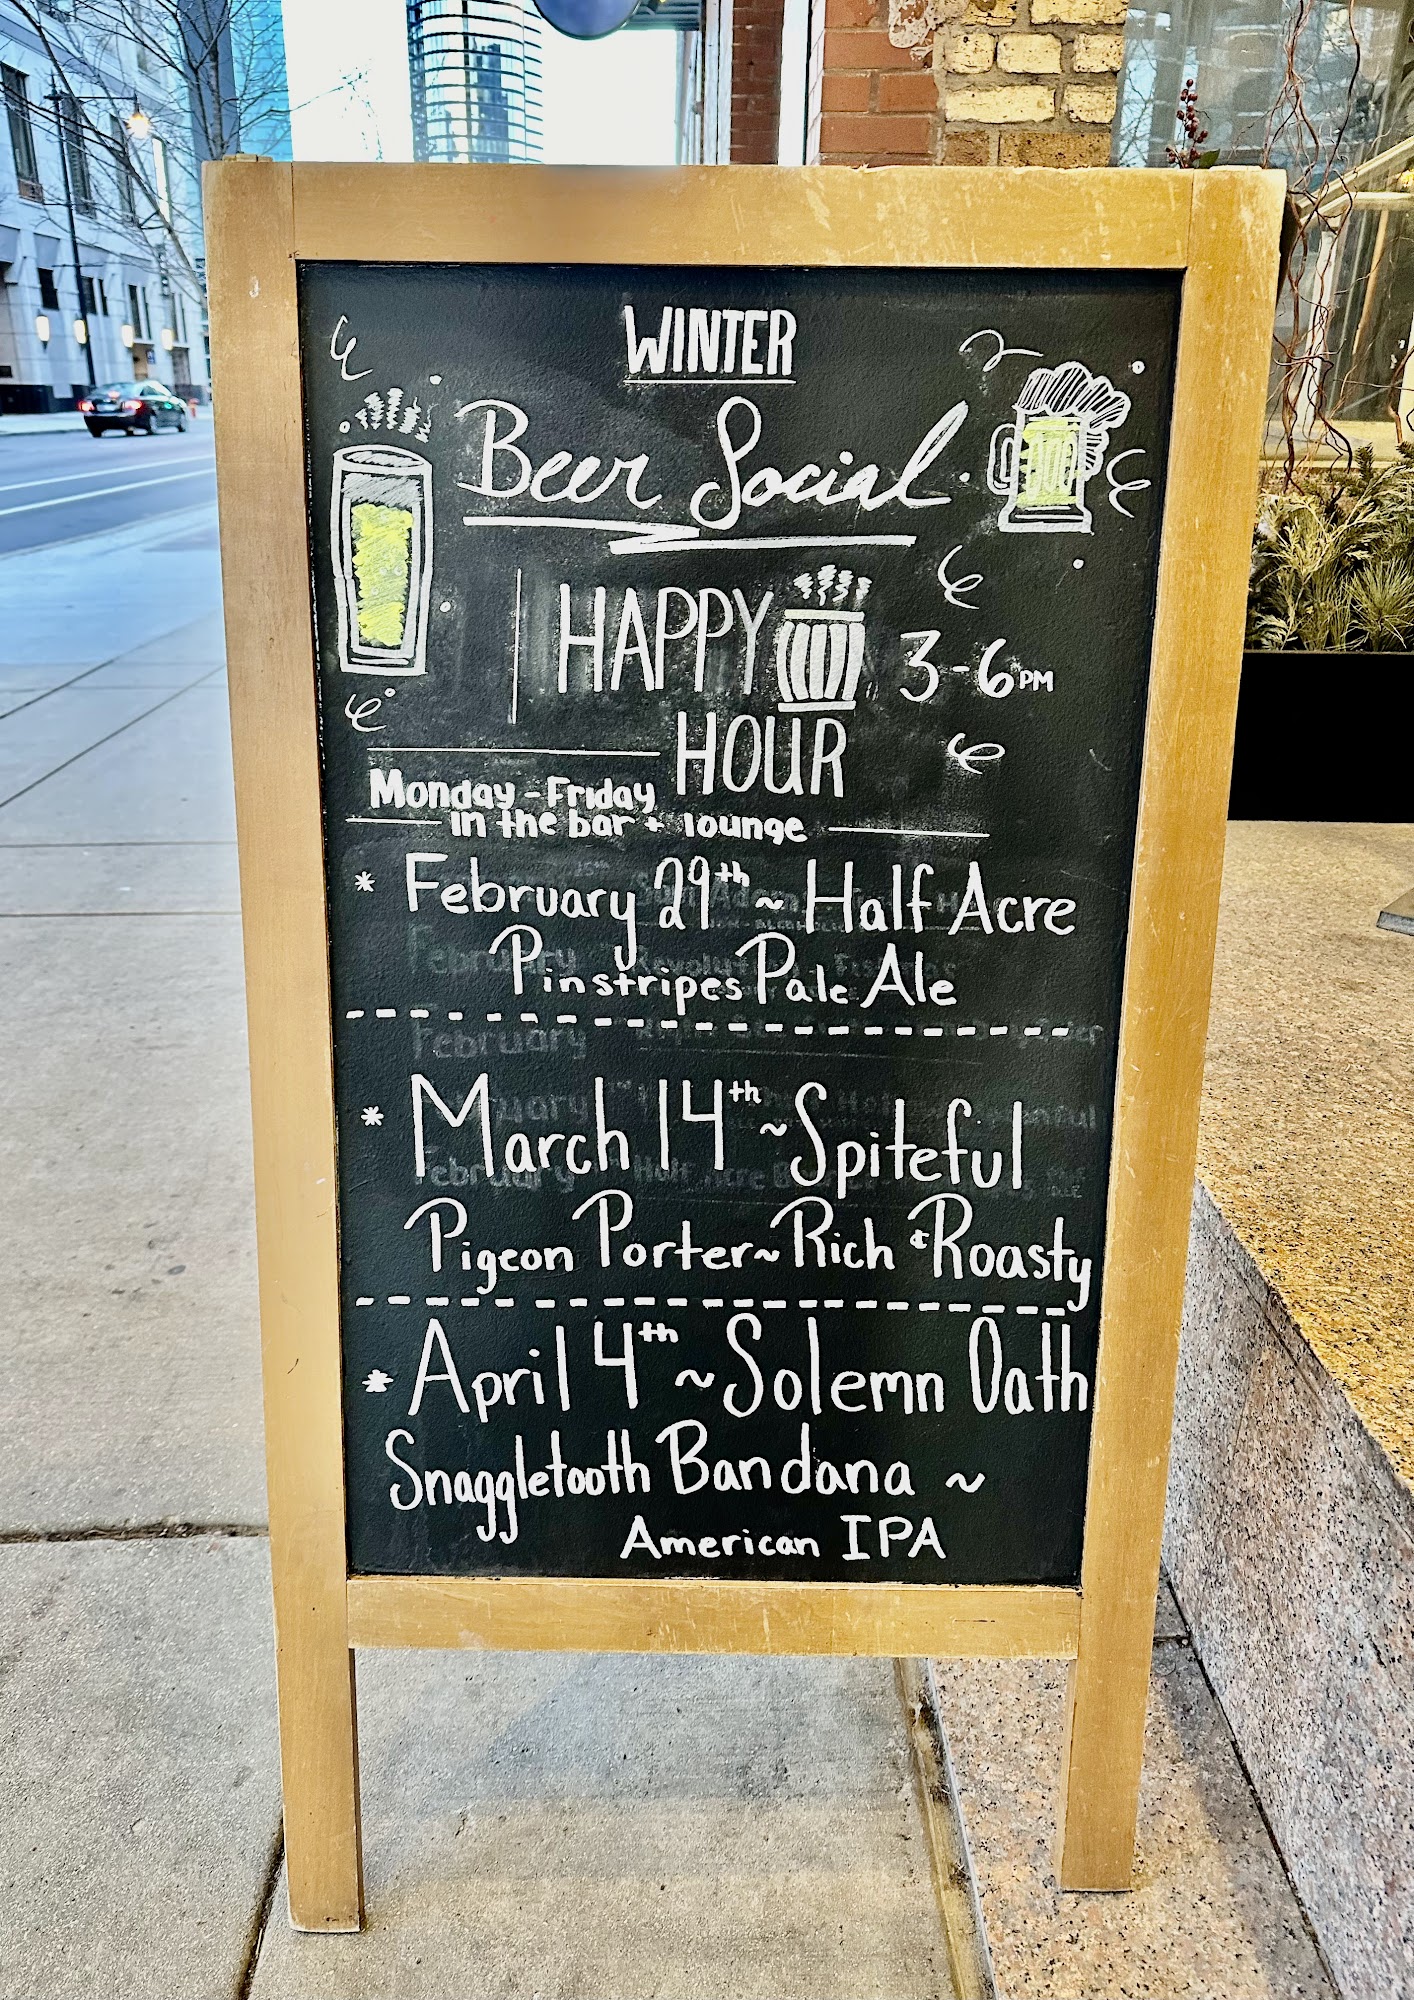 WINTER
Beer Social
HAPPY 3-6PM
HOUR
Monday-Friday
in the bar + lounge
* February 29th ~ Half Acre
Pinstripes Pale Ale
* March 14th ~ Spiteful
Pigeon Porter ~ Rich & Roasty
* April 4th ~ Solemn Oath
Snaggletooth Bandana ~
American IPA